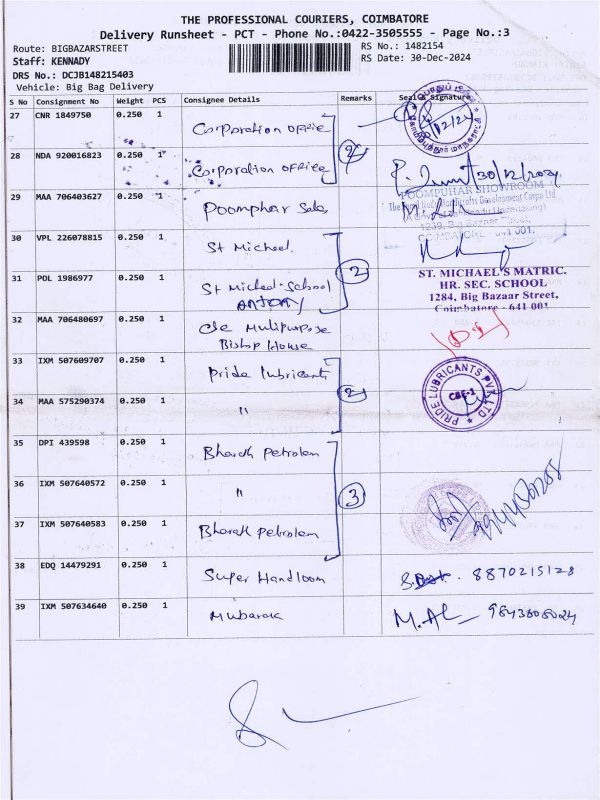 THE PROFESSIONAL COURIERS, COIMBATORE
Delivery Runsheet - PCT - Phone No.:0422-3505555 - Page No.:3
Route: BIGBAZARSTREET
RS No.: 1482154
Staff: KENNADY
RS Date: 30-Dec-2024
DRS No.: DCJB148215403
Vehicle: Big Bag Delivery
S No Consignment No Weight PCS Consignee Details Remarks Seal & Signature
27 CNR 1849750 0.250 1 Corporation office
12/24
28 NDA 920016823 0.250 1 Corporation office 2 30/12/2024
29 MAA 706403627 0.250 1 Poomphar Sales
POOMPUHAR SHOWROOM
30 VPL 226078815 0.250 1 St Micheal
31 POL 1986977 0.250 1 St Micheal School 2
ANTONY
ST. MICHAEL'S MATRIC.
HR. SEC. SCHOOL
1284, Big Bazaar Street,
Coimbatore - 641 001
32 MAA 706480697 0.250 1 C/e Mulipurpose
Bishop House
33 IXM 507609707 0.250 1 Pride lubricants
PRIDE LUBRICANTS PVT LTD
CBE-1
34 MAA 575290374 0.250 1 " 2
35 DPI 439598 0.250 1 Bharath Petrolem
36 IXM 507640572 0.250 1 " 3
37 IXM 507640583 0.250 1 Bharath Petrolem
38 EDQ 14479291 0.250 1 Super Handloom 8870215128
39 IXM 507634640 0.250 1 Mubarak M. AL 9843608024